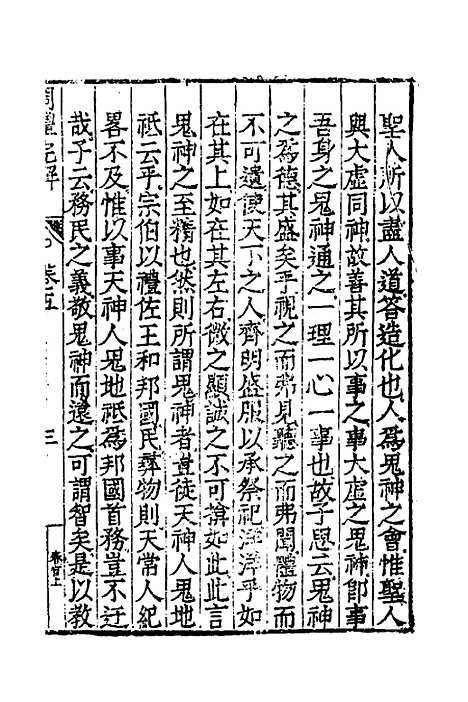 聖人所以盡人道答造化也人爲鬼神之會惟聖人
與大虛同神故善其所以事之事大虛之鬼神卽事
吾身之鬼神通之一理一心一事也故子思云鬼神
之爲德其盛矣乎視之而弗見聽之而弗聞體物而
不可遺使天下之人齊明盛服以承祭祀洋洋乎如
在其上如在其左右微之顯誠之不可揜如此此言
鬼神之至精也然則所謂鬼神者豈徒天神人鬼地
祇云乎宗伯以禮佐王和邦國民群物則天常人紀
畧不及惟以事天神人鬼地祇爲邦國首務豈不迂
哉子云務民之義敬鬼神而遠之可謂智矣是以教
周禮完解
卷五
三
春官上